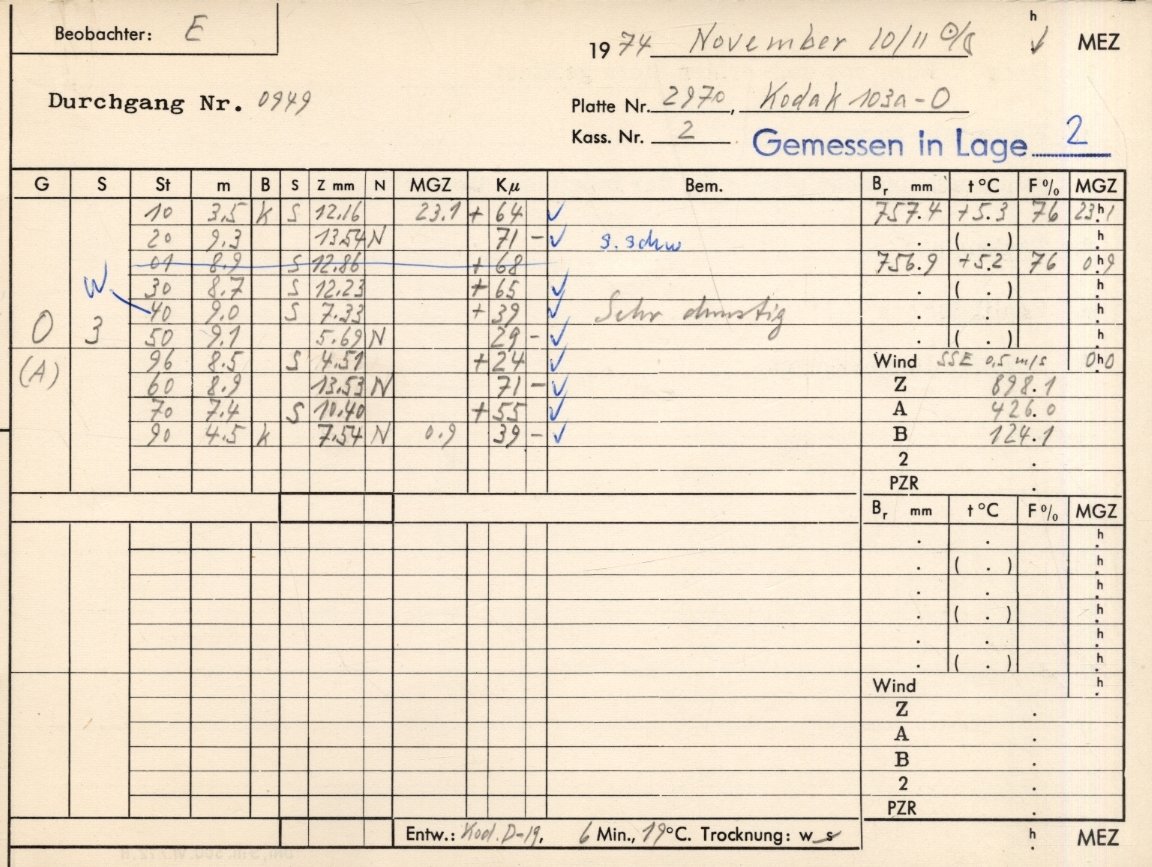 Beobachter: E
1974 November 10/11 ☉/☾ h MEZ
Durchgang Nr. 0949
Platte Nr. 2970, Kodak 103a-O
Kass. Nr. 2
Gemessen in Lage 2
G S St m B S Z mm N MGZ Kμ Bem. Br mm t°C F% MGZ
10 3.5 k S 12.16 23.1 + 64 ✓ 757.4 +5.3 76 23h1
20 9.3 13.54 N 71 - ✓ s. schw . ( . ) h
01 8.9 S 12.86 + 68 756.9 +5.2 76 0h9
W 30 8.7 S 12.23 + 65 ✓ . ( . ) h
40 9.0 S 7.33 + 39 ✓ Sehr dunstig . . h
O 3 50 9.1 5.69 N 29 - ✓ . ( . ) h
(A) 96 8.5 S 4.51 + 24 ✓ Wind SSE 0,5 m/s 0h0
60 8.9 13.53 N 71 - ✓ Z 898.1
70 7.4 S 10.40 + 55 ✓ A 426.0
90 4.5 k 7.54 N 0.9 39 - ✓ B 124.1
2 .
PZR .
Br mm t°C F% MGZ
. . h
. ( . ) h
. . h
. ( . ) h
. . h
. ( . ) h
Wind h
Z .
A .
B .
2 .
PZR .
Entw.: Kod. D-19, 6 Min., 19°C. Trocknung: w s h MEZ